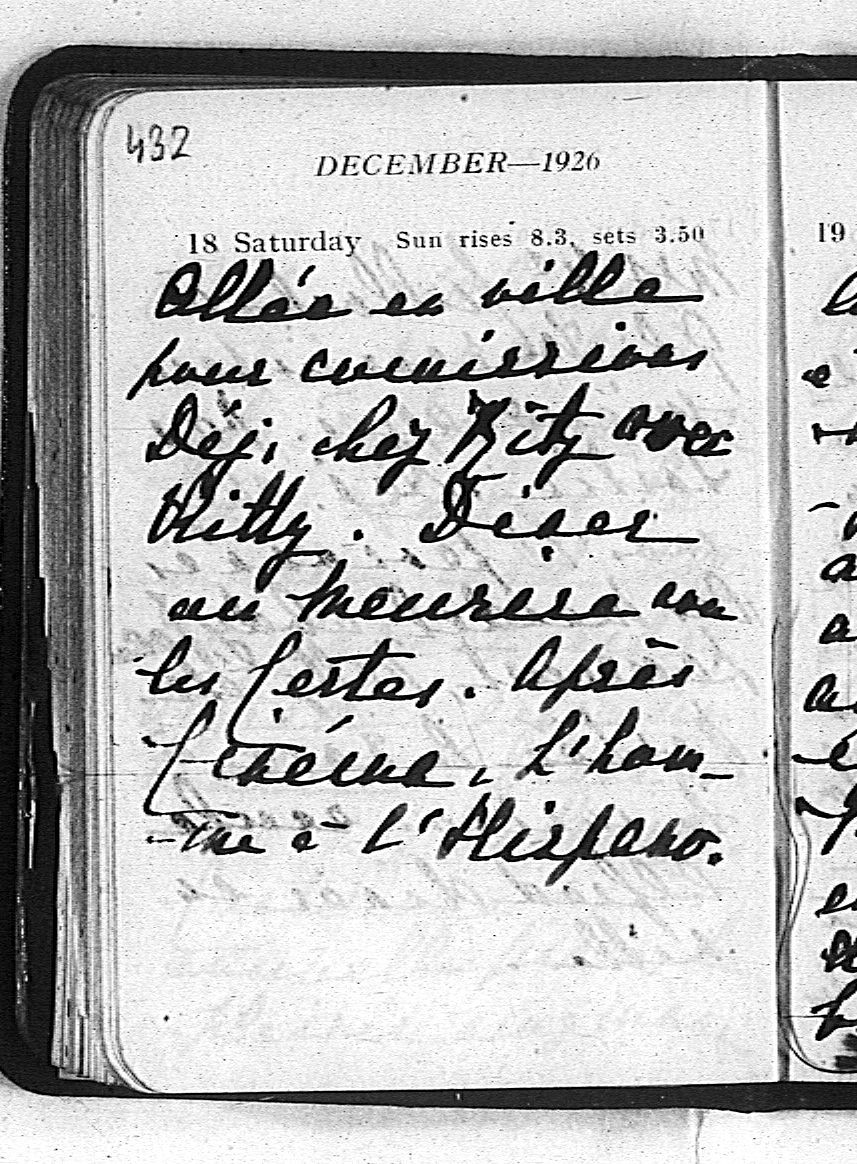 432
DECEMBER—1926
18 Saturday Sun rises 8.3, sets 3.50
19
Allée en ville
pour commissions
Déj. chez Ritz avec
Kitty. Dîner
au Meurice avec
les Certes. Après
Cinéma, L'hom-
-me à l'Hispano.